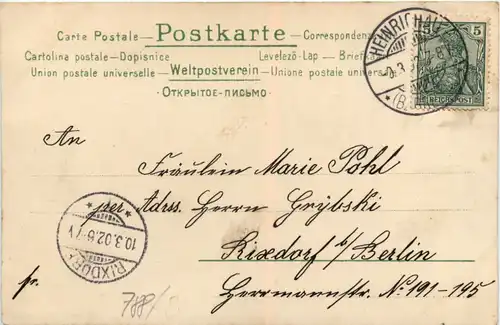 Carte Postale — Postkarte — Correspondenz
Cartolina postale – Dopisnice Levelező-Lap — Briefkaart
Union postale universelle – Weltpostverein – Unione postale universale
· ОТКРЫТОЕ-ПИСЬМО ·
HEINRICHAU
5 5
REICHSPOST
An
Fräulein Marie Pohl
per Adrss. Herrn Grÿbski
Rixdorf b/Berlin
pr. Herrmannstr. No 191-195
RIXDORF
10.3.02.6-7V